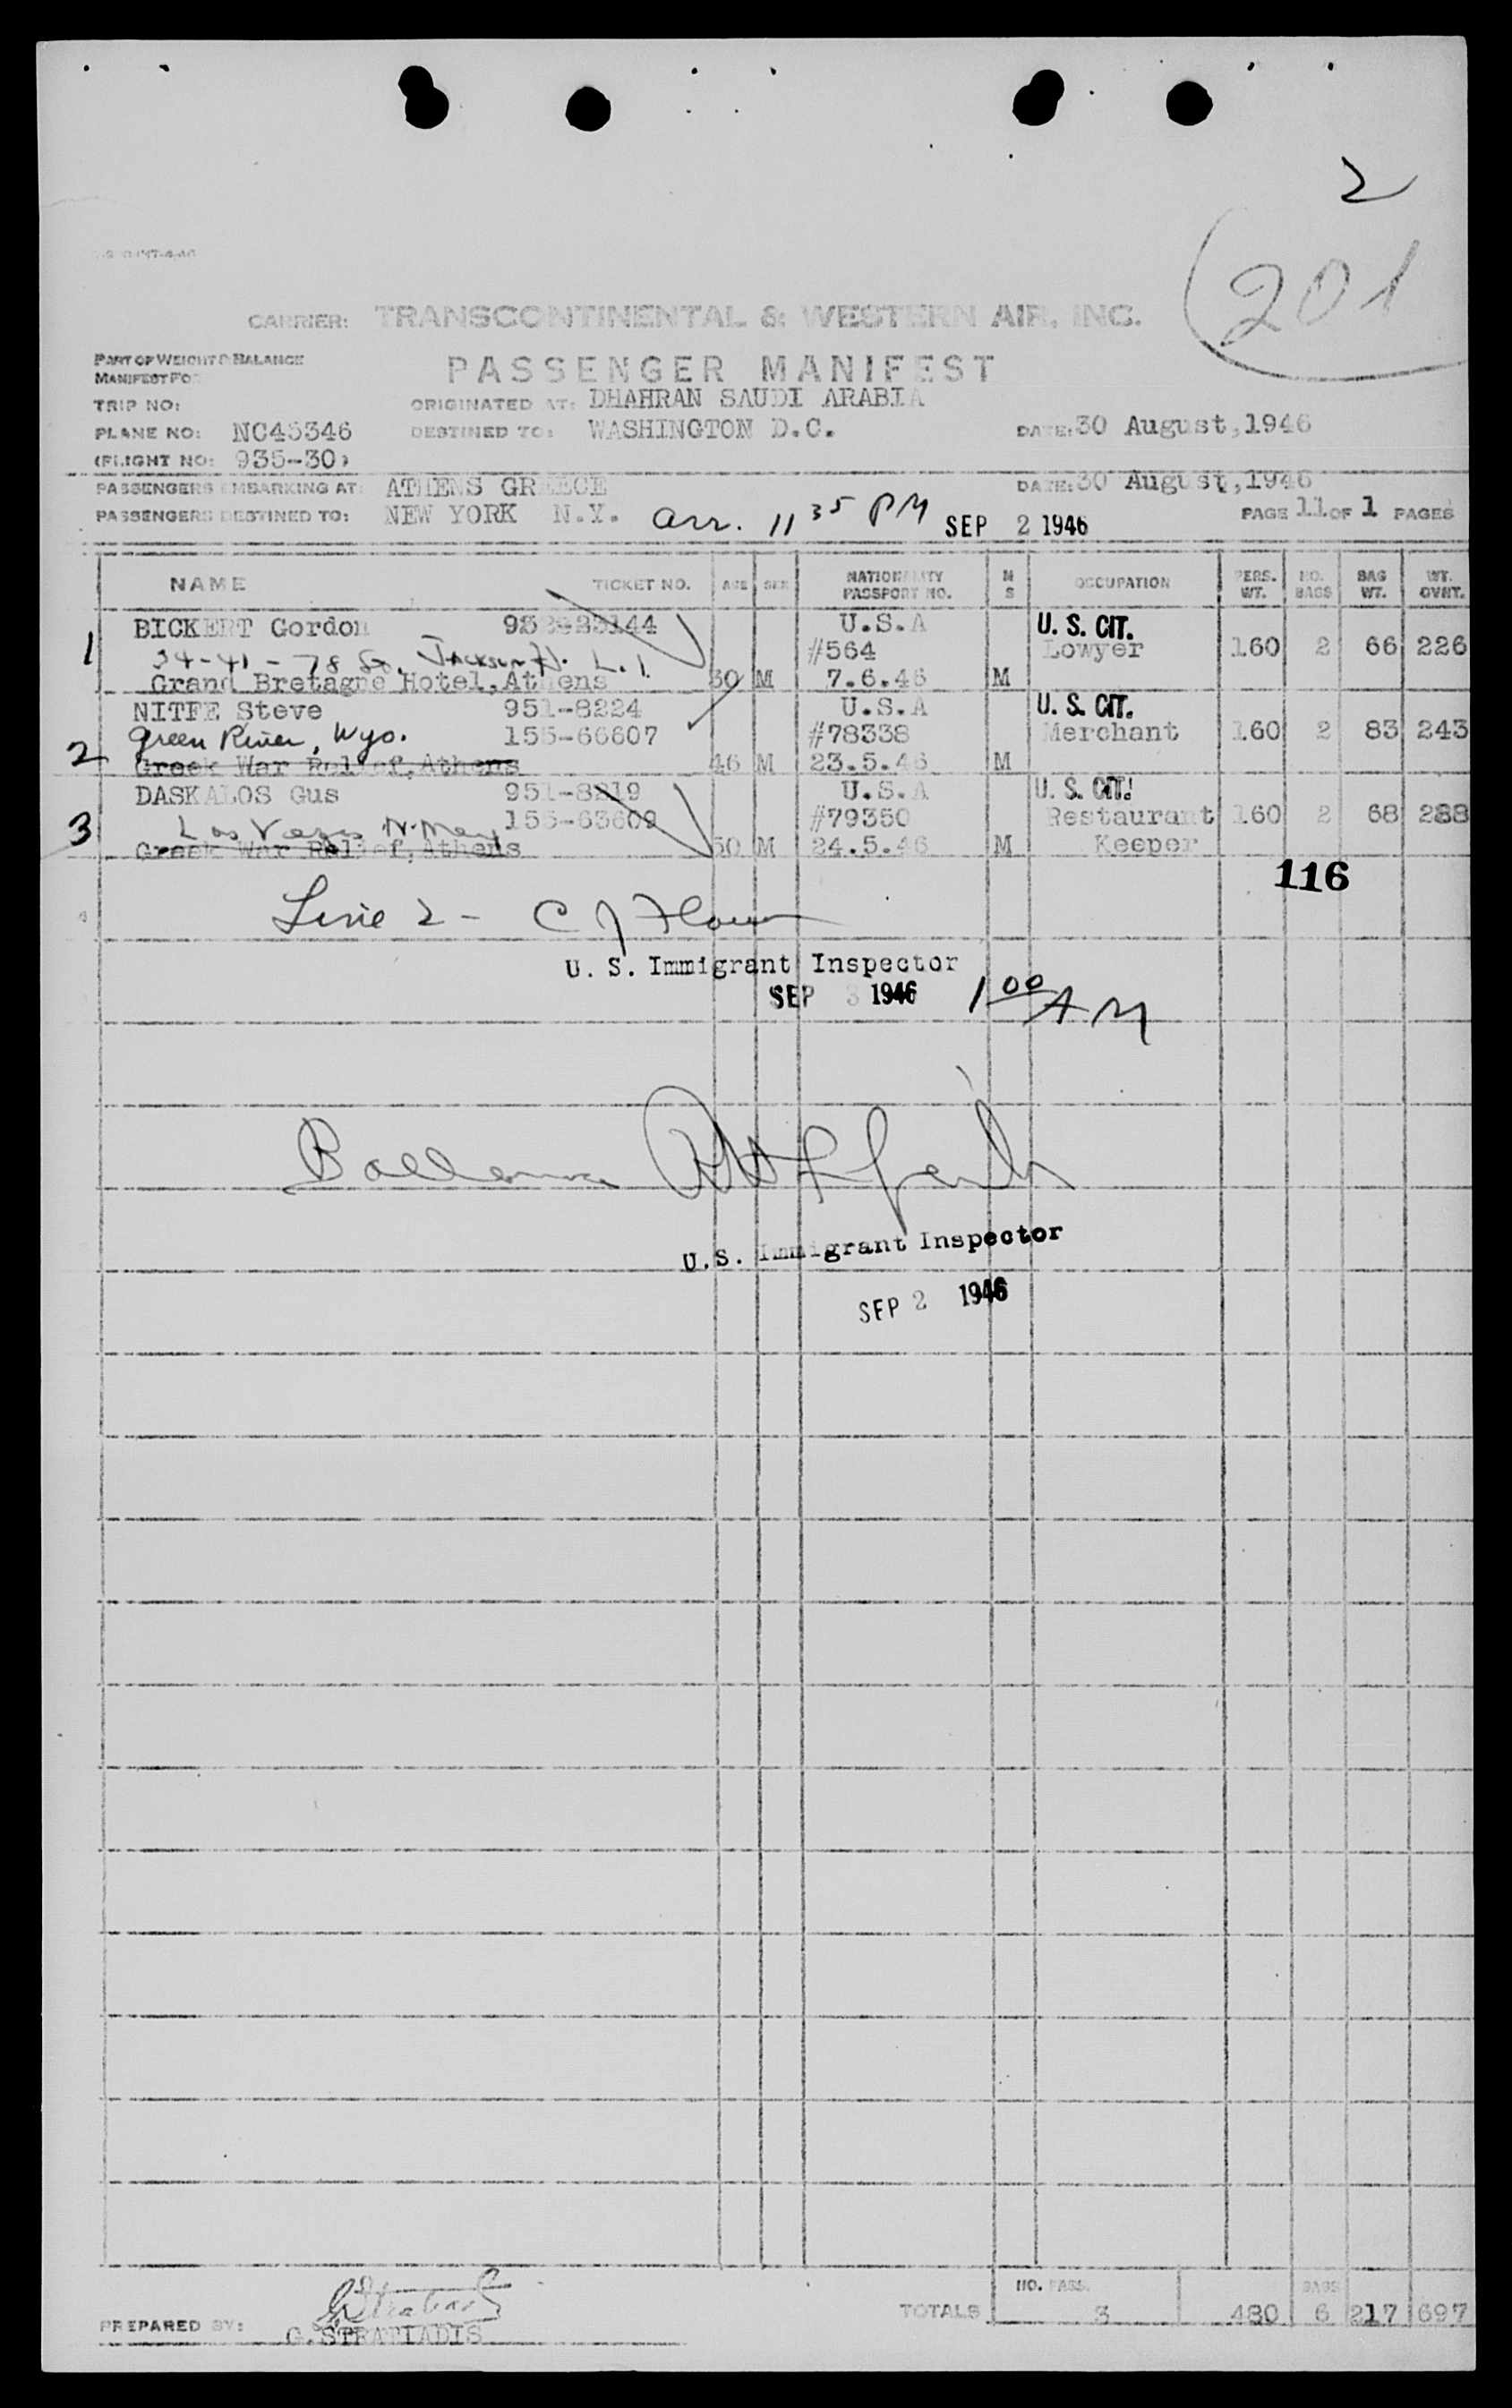 2
201
CARRIER: TRANSCONTINENTAL & WESTERN AIR, INC.
PART OF WEIGHT & BALANCE
MANIFEST FOR
PASSENGER MANIFEST
TRIP NO: ORIGINATED AT: DHAHRAN SAUDI ARABIA
PLANE NO: NC45346 DESTINED TO: WASHINGTON D.C. DATE: 30 August, 1946
(FLIGHT NO: 935-30)
PASSENGERS EMBARKING AT: ATHENS GREECE DATE: 30 August, 1946
PASSENGERS DESTINED TO: NEW YORK N.Y. arr. 11 35 PM SEP 2 1946 PAGE 11 OF 1 PAGES
NAME TICKET NO. AGE SEX NATIONALITY PASSPORT NO. M S OCCUPATION PERS. WT. NO. BAGS BAG WT. WT. OVHT.
BICKERT Gordon U.S.A U. S. CIT.
1 34-41-78 St. Jackson H. L.I. #564 Lowyer 160 2 66 226
Grand Bretagne Hotel, Athens 30 M 7.6.46 M
NITFE Steve 951-8224 U.S.A U. S. CIT.
Green River, Wyo. 155-66607 #78338 Merchant 160 2 83 243
2 Greek War Relief, Athens 46 M 23.5.46 M
DASKALOS Gus 951-8219 U.S.A U. S. CIT.
3 Las Vegas N. Mex 155-63609 #79350 Restaurant 160 2 68 288
Greek War Relief, Athens 50 M 24.5.46 M Keeper
116
Line 2 - C J
U. S. Immigrant Inspector
SEP 3 1946 1 00 AM
U.S. Immigrant Inspector
SEP 2 1946
NO. PASS. BAGS
TOTALS 3 480 6 217 697
PREPARED BY: G. STRATIADIS